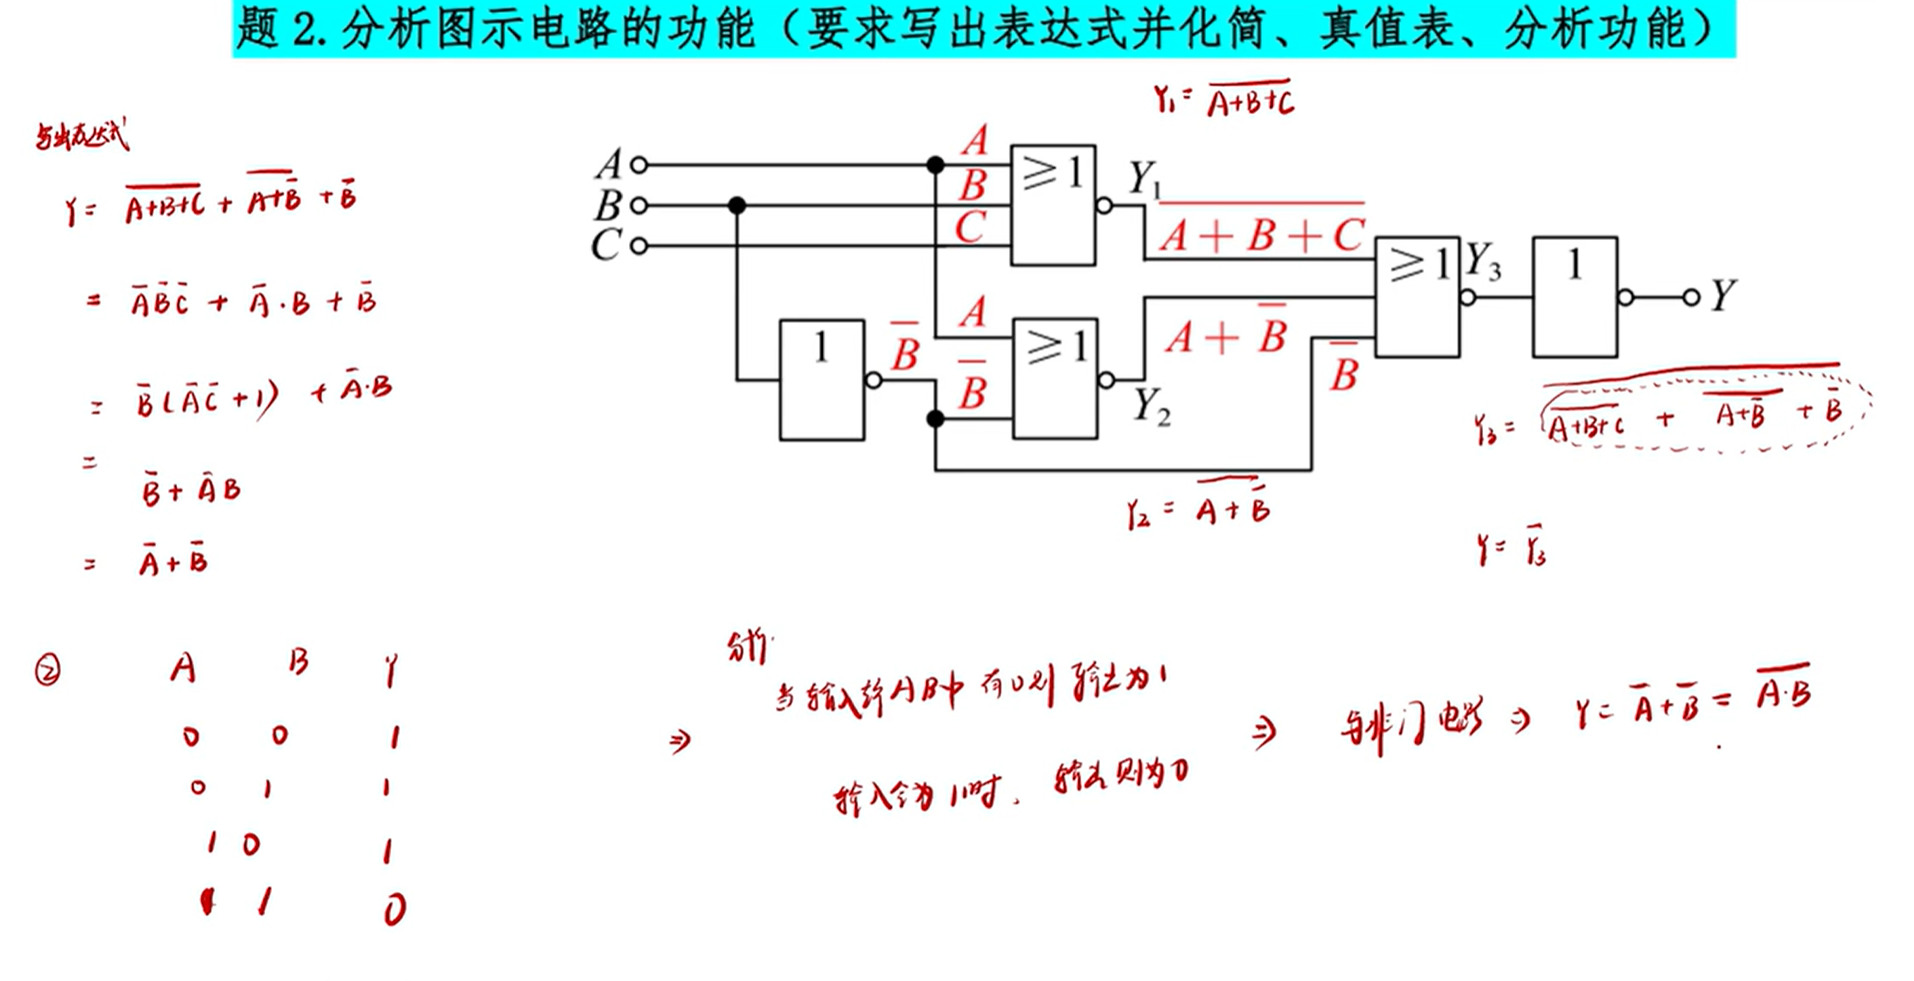 题 2.分析图示电路的功能（要求写出表达式并化简、真值表、分析功能）
写出表达式
Y = \overline{A+B+C} + \overline{A+\overline{B}} + \overline{B}
= \overline{A}\,\overline{B}\,\overline{C} + \overline{A}·B + \overline{B}
= \overline{B}(\overline{A}\,\overline{C}+1) + \overline{A}·B
=
\overline{B} + \overline{A}B
= \overline{A}+\overline{B}
Y₁ = \overline{A+B+C}
A
B
C
A
B
C
≥1
Y₁
\overline{A+B+C}
≥1
Y₃
1
Y
1
\overline{B}
A
\overline{B}
≥1
Y₂
A+\overline{B}
\overline{B}
Y₂ = \overline{A+\overline{B}}
Y₃ = \overline{\overline{A+B+C} + \overline{A+\overline{B}} + \overline{B}}
Y = \overline{Y₃}
② A B Y
0 0 1
0 1 1
1 0 1
1 1 0
分析:
⇒ 当输入端AB中有0则输出为1
输入全为1时、输出则为0
⇒ 与非门电路 ⇒ Y = \overline{A}+\overline{B} = \overline{A·B}